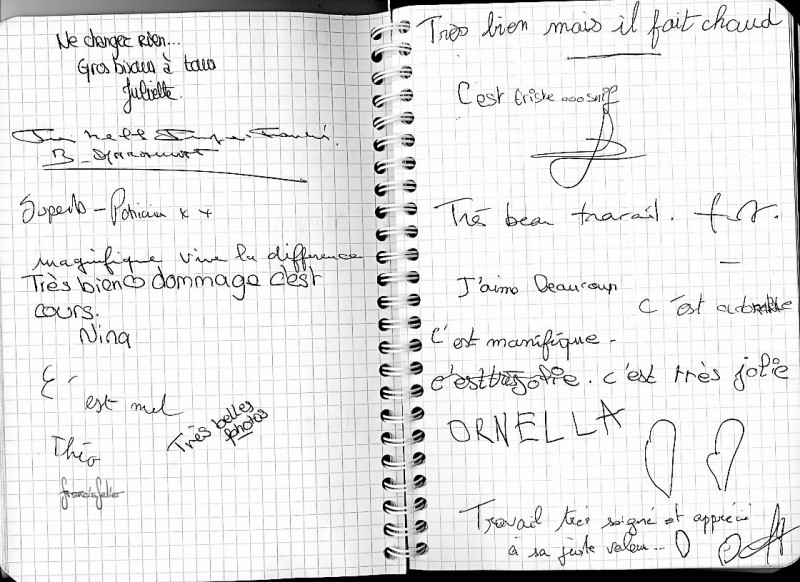 Ne changez rien...
Gros bisous à tous
Juliette.
Superb - Patricia x x
magnifique vive la difference
Très bien dommage c'est
cours.
Nina
C'
est mel
Très belles
photos
Théo
Très bien mais il fait chaud
C'est triste ooo snif
Trés beau travail.
J'aime Beaucoup
C'est adorable
C'est manifique -
c'est très jolie. c'est très jolie
ORNELLA
Travail très soigné et apprécié
à sa juste valeur...